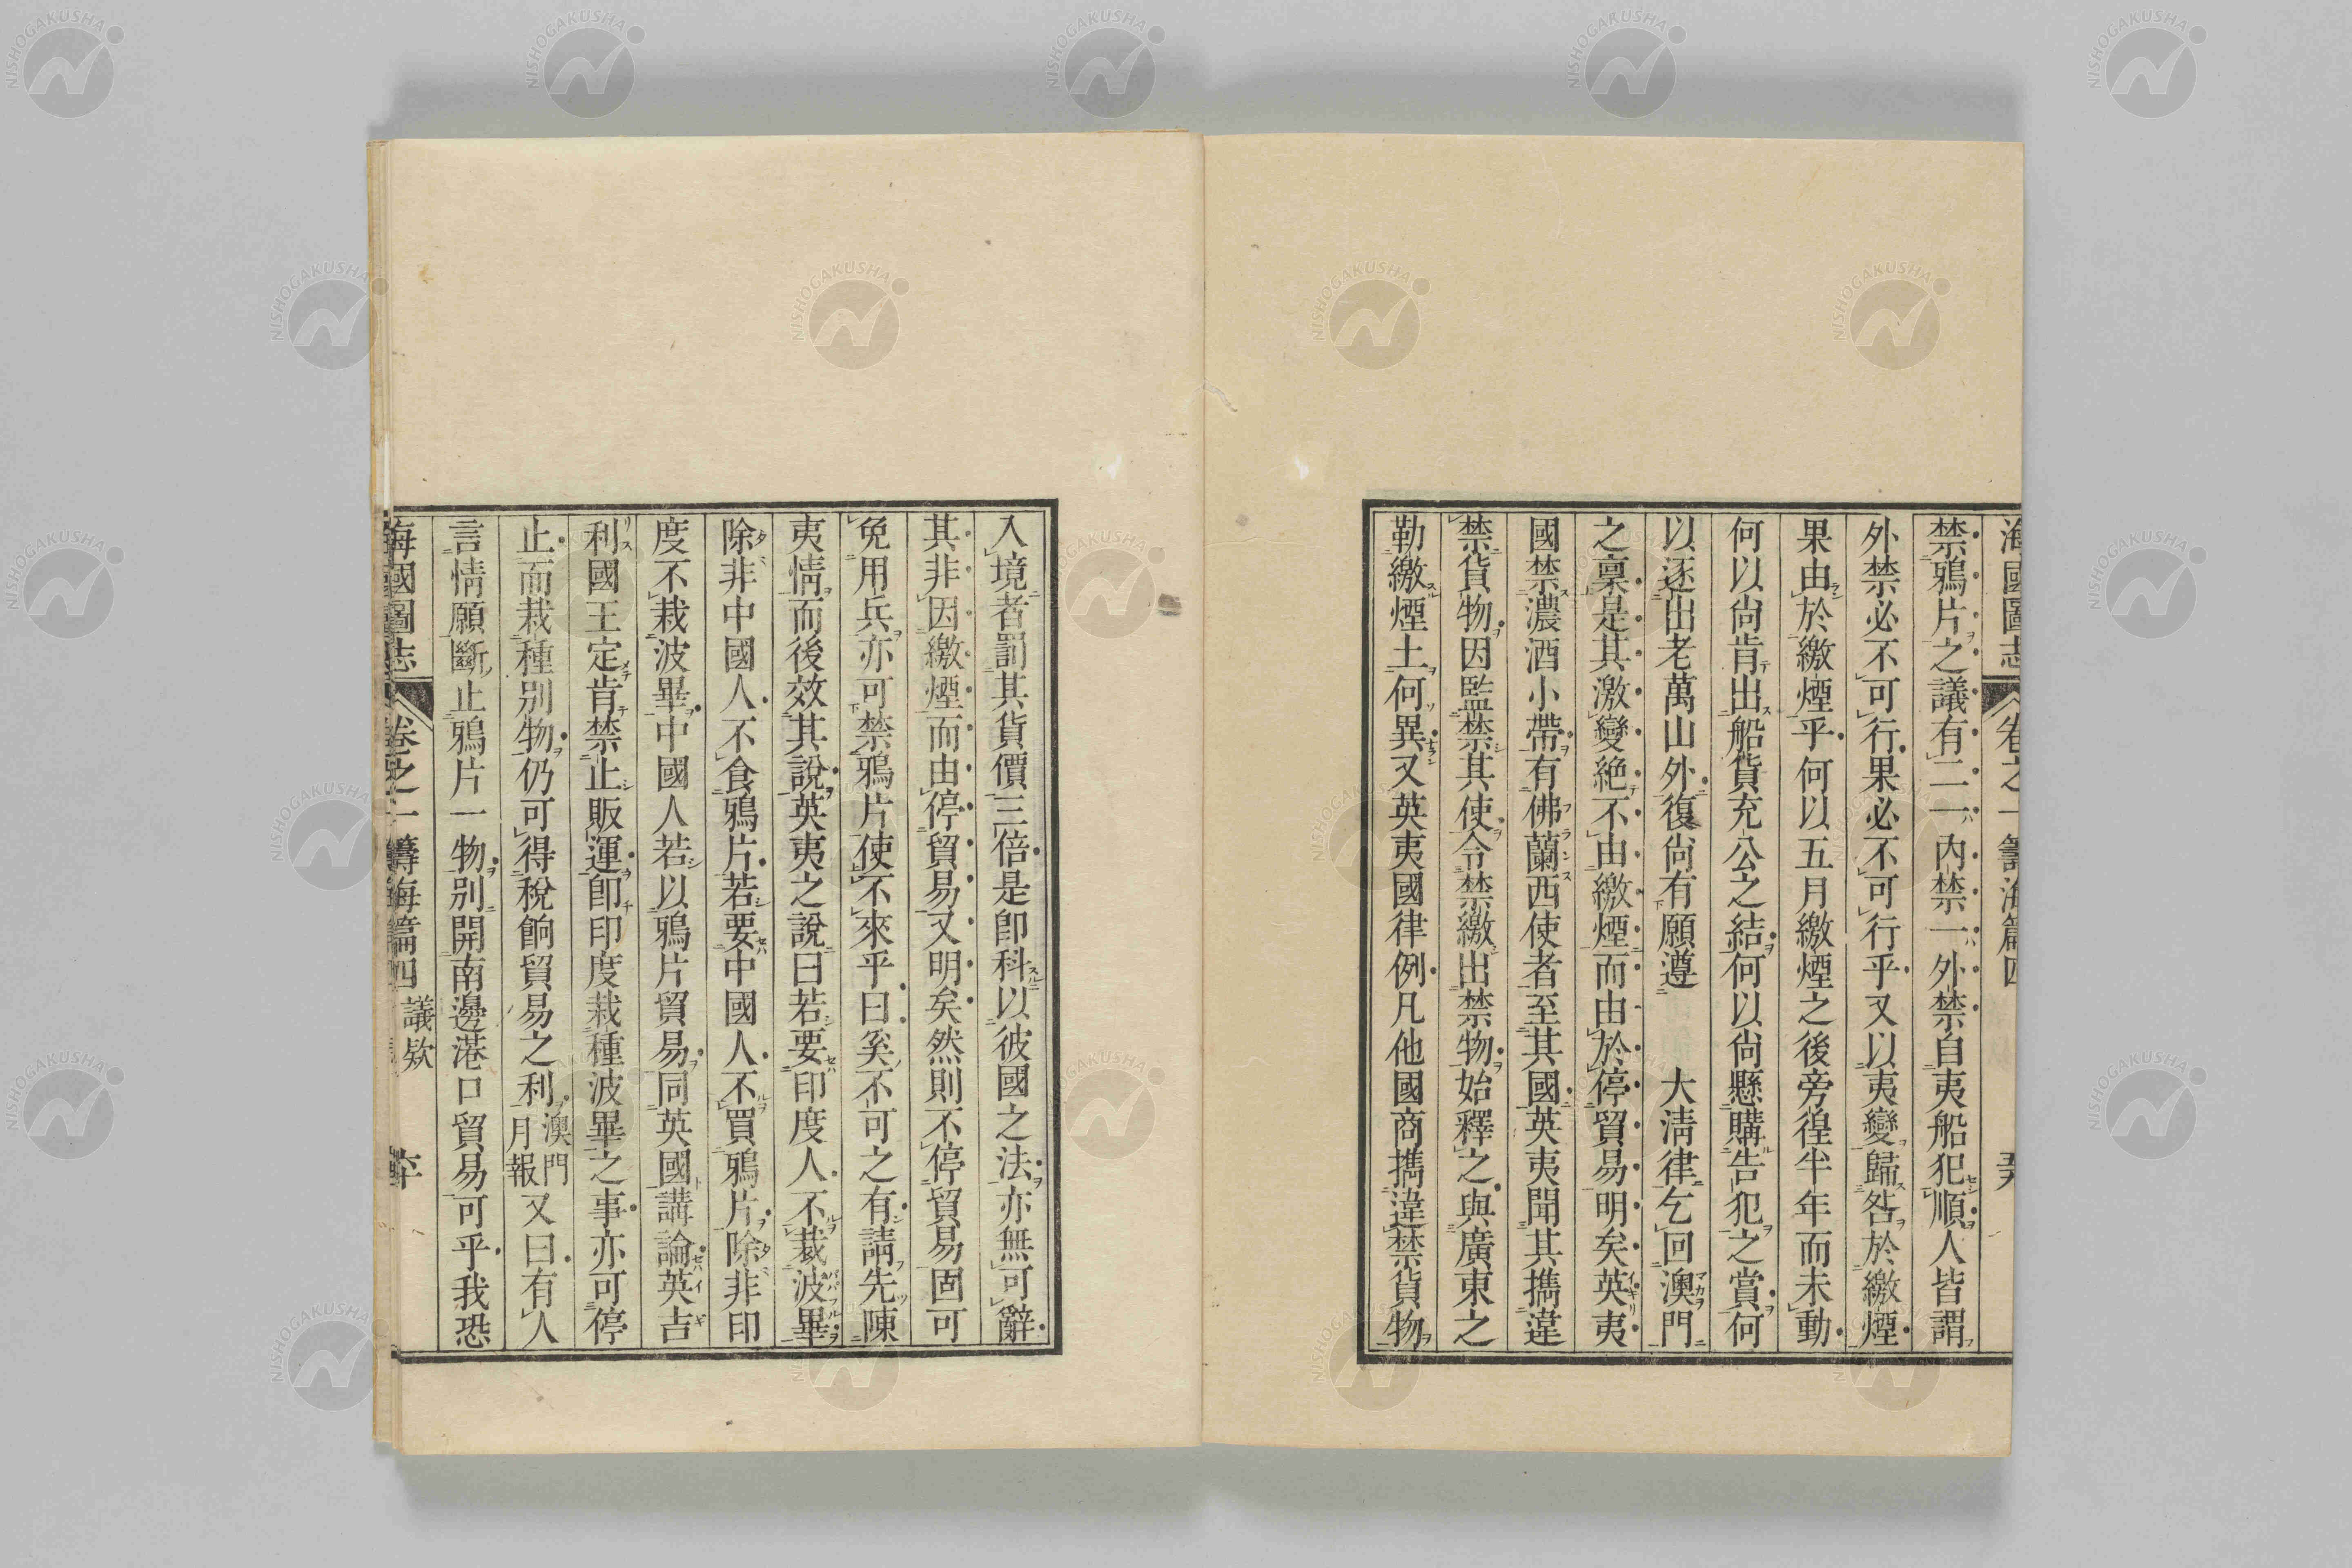 海國圖志 卷之一 籌海篇四
禁鴉片之議有二一內禁一外禁自夷船犯順人皆謂
外禁必不可行果必不可行乎又以夷變歸咎於繳煙
果由於繳煙乎何以五月繳煙之後旁徨半年而未動
何以尚肯出船貨充公之結何以尚懸購告犯之賞何
以逐出老萬山外復尚有願遵　大淸律乞回澳門
之稟是其激變絕不由繳煙而由於停貿易明矣英夷
國禁濃酒小帶有佛蘭西使者至其國英夷聞其擕違
禁貨物因監禁其使令禁繳出禁物始釋之與廣東之
勒繳煙土何異又英夷國律例凡他國商擕違禁貨物
入境者罰其貨價三倍是卽科以彼國之法亦無可辭
其非因繳煙而由停貿易又明矣然則不停貿易固可
免用兵亦可禁鴉片使不來乎曰奚不可之有請先陳
夷情而後效其說英夷之說曰若要印度人不裁波畢
除非中國人不食鴉片若要中國人不買鴉片除非印
度不栽波畢中國人若以鴉片貿易同英國講論英吉
利國王定肯禁止販運卽印度栽種波畢之事亦可停
止而栽種別物仍可得稅餉貿易之利澳門月報又曰有人
言情願斷止鴉片一物別開南邊港口貿易可乎我恐
海國圖志 卷之一 籌海篇四 議欵 六十
NISHOGAKUSHA